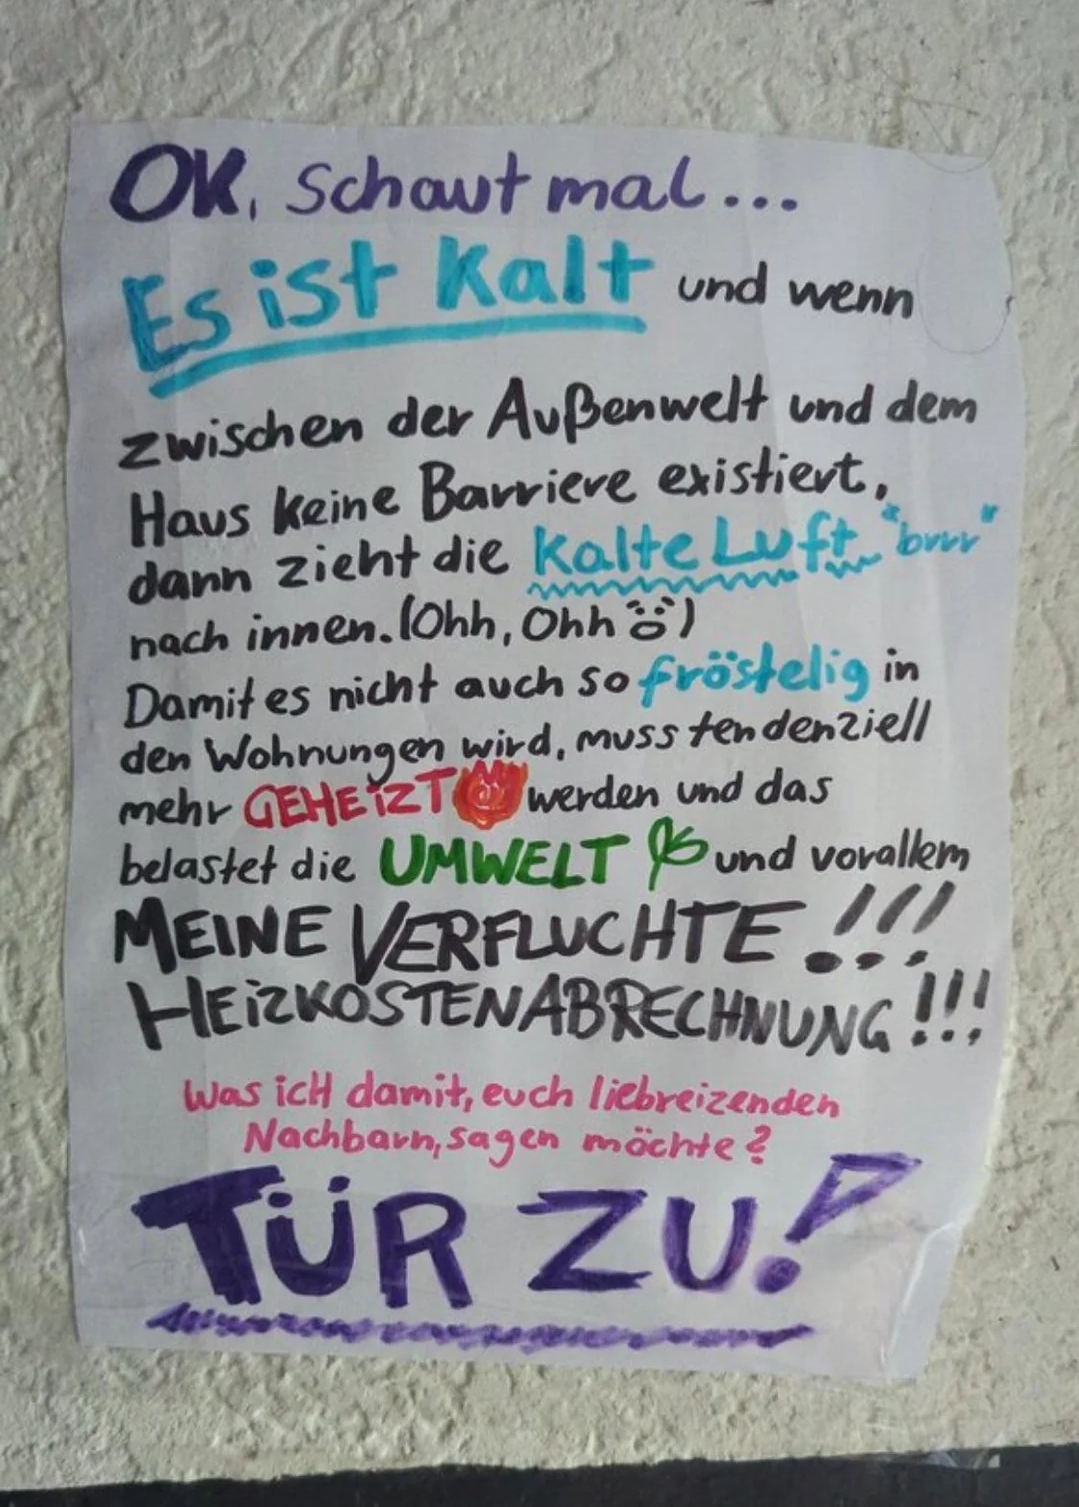 OK, schaut mal...
Es ist kalt und wenn
zwischen der Außenwelt und dem
Haus keine Barriere existiert,
dann zieht die kalte Luft "brrr"
nach innen. (Ohh, Ohh ☹)
Damit es nicht auch so fröstelig in
den Wohnungen wird, muss tendenziell
mehr GEHEIZT werden und das
belastet die UMWELT und vorallem
MEINE VERFLUCHTE!!!
HEIZKOSTENABRECHNUNG!!!
Was icH damit, euch liebreizenden
Nachbarn, sagen möchte?
TÜR ZU!